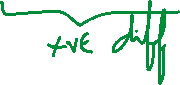 +ve diff